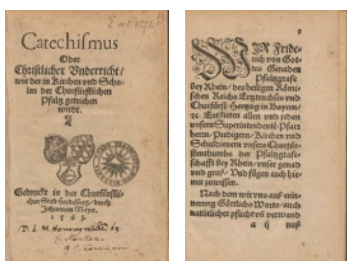 Catechismus
Oder
Christlicher Underricht/
wie der in Kirchen und Schu-
len der Churfürstlichen
Pfaltz getrieben
wirdt.
Gedruckt in der Churfürstli-
chen Stad Heydelberg/ durch
Johannem Mayer.
1563.
WIR Fride-
rich von Got-
tes Genaden
Pfaltzgrafe
bey Rhein/ des heiligen Römi-
schen Reichs Ertzdruchses und
Churfürst/ Hertzog in Bayern/
Entbieten allen und jeden
unsern Superintendenten/ Pfarr
herrn/ Predigern/ Kirchen und
Schuldienern unsers Churfür-
stenthumbs der Pfaltzgrafe-
schafft bey Rhein/ unser genad
und gruß/ Und fügen euch hie-
mit zuwissen.
Nach dem wir uns auß erin-
nerung Göttliches Worts/ auch
natürlicher pflicht und verwand
a ij